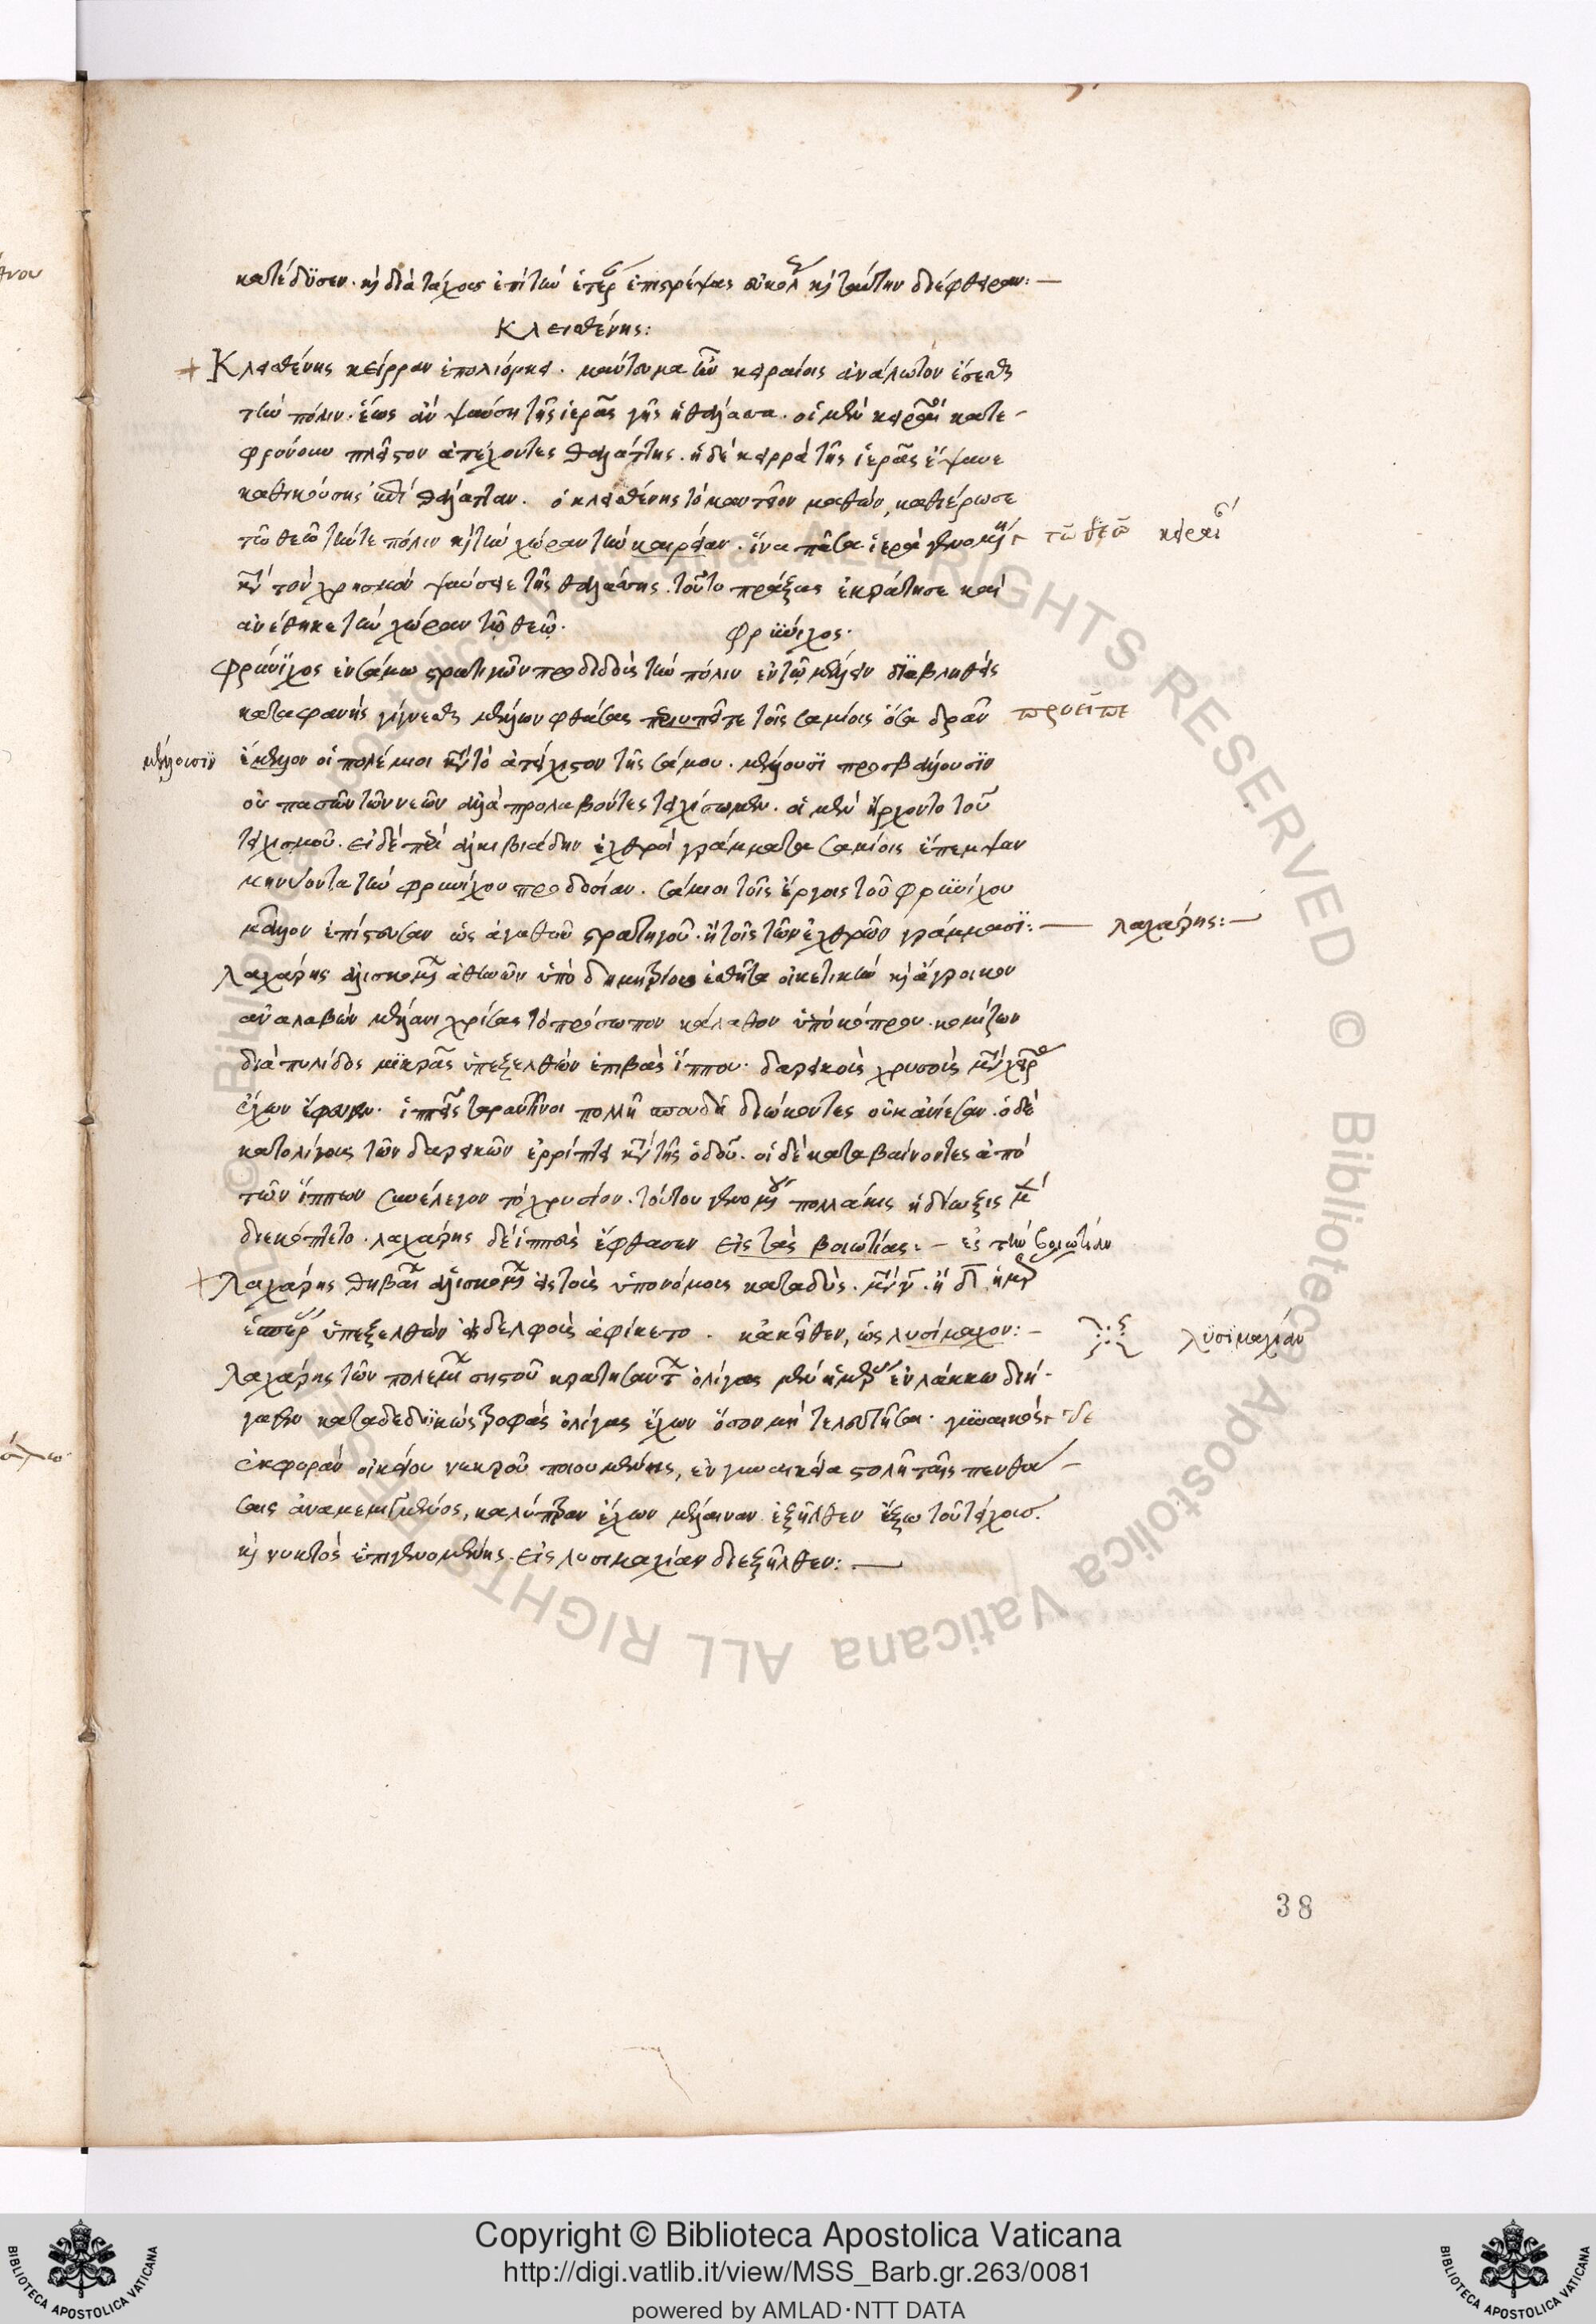 κατέδϋσεν. κὶ διὰ τάχους ἐπὶ τὴν ἑτέρ ἐπιστρέψας κὶ ταύτην διέφθειρεν:—
Κλεισθένης:
Κλεισθένης κείρραν ἐπολιόρκει. μάντευμα τῶν κειραίοις ἀνάλωτον ἔσεσθαι
τὴν πόλιν. ἕως ἂν ψαύση τῆς ἱερᾶς γῆς ἡ θάλασσα. οἱ μὲν κειραῖοι κατε-
φρόνουν πλεῖστον ἀπέχοντες θαλάττης. ἡ δὲ κειρρὰ τῆς ἱερᾶς ἔψαυε
καθηκούσης ἐπὶ θάλατταν. ὁ κλεισθένης τὸ μαντεῖον μαθὼν, καθιέρωσε
τῶ θεῶ τήν τε πόλιν κὶ τὴν χώραν τὴν . ἵνα πᾶσα ἱερὰ γενομένη τῶ θεῶ κειραί
κατὰ τὸν χρησμὸν ψαύσειε τῆς θαλάσσης. τοῦτο πράξας ἐκράτησε καὶ
ἀνέθηκε τὴν χώραν τῷ θεῷ.
Φρϋνιχος.
Φρύνϊχος ἐν σάμω στρατηγῶν προδιδοὺς τὴν πόλιν ἐν τῷ μέλλειν διαβληθεὶς
καταφανὴς γίγνεσθαι μέλλων φθάσας τοῖς σαμίοις ὅσα δρᾶν προυεῖπε
μέλλουσϊν ἔμελλον οἱ πολέμιοι κατὰ τὸ ἀτείχιστον τῆς σάμου. μέλλουσϊ προσβάλλουσϊν
οὐ πασῶν τῶν νεῶν ἀλλὰ προλαβόντες τειχίσωμεν. οἱ μὲν ἤρχοντο τοῦ
τειχισμοῦ. οἱ δὲ περὶ ἀλκιβιάδην ἐχθροὶ γράμματα σαμίοις ἔπεμψαν
μηνύοντα τὴν φρυνίχου προδοσίαν. σάμιοι τοῖς ἔργοις τοῦ φρϋνίχου
μᾶλλον ἐπίστευσαν ὡς ἀγαθοῦ στρατηγοῦ. ἢ τοῖς τῶν ἐχθρῶν γράμμασϊ:— λαχάρης:—
Λαχάρης ἁλισκομένων ἀθηνῶν ὑπὸ δημητρίου ἐσθῆτα οἰκετικὴν κὶ ἄγροικον
ἀναλαβὼν μέλανι χρίσας τὸ πρόσωπον κάλαθον ὑπὸ κόπρου κομίζων
διὰ πυλίδος μϊκρᾶς ὑπεξελθὼν ἐπιβὰς ἵππου. δαρεικοὺς χρυσοῦς μετὰ χεῖρας
ἔχων ἔφευγεν. ἱππεῖς ταραντῖνοι πολλῆ σπουδῆ διώκοντες οὐκ ἀνίεσαν. ὁ δὲ
κατ ὀλίγους τῶν δαρεικῶν ἐρρίπτει κατὰ τῆς ὁδοῦ. οἱ δὲ καταβαίνοντες ἀπὸ
τῶν ἵππων συνέλεγον τὸ χρυσίον. τούτου γενομένου πολλάκις ἡ δίωξις μὲν
διεκόπτετο. λαχάρης δὲ ἔφθασεν εἰς τὰς βοιωτίας:— εἰς τὴν βοιωτίαν
Λαχάρης θηβῶν ἁλισκομένων εἰς τοὺς ὑπονόμους καταδὺς. μετὰ γ. ἢ δ ἡμέρας
ἑσπέρας ὑπεξελθὼν εἰς δελφοὺς ἀφίκετο. κἀκεῖθεν, ὡς λυσίμαχον:— λϋσϊμαχίαν
Λαχάρης τῶν πολεμίων σηστοῦ κρατησάντων ὀλίγας μὲν ἡμέρας ἐν λάκκω διή-
γαγεν καταδεδυκὼς τροφὰς ὀλίγας ἔχων ὅσον μὴ τελευτῆσαι. γυναικὸς δὲ
ἐκφορὰν οἰκείου νεκροῦ ποιουμένης, ἐν γυναικεία στολῆ ταῖς πενθού-
σαις ἀναμεμιγμένος, καλύπτραν ἔχων μέλαιναν ἐξῆλθεν ἔξω τοῦ τείχους.
κὶ νυκτὸς ἐπιγενομένης. εἰς λυσιμαχίαν διεξῆλθεν:.—
38
Copyright © Biblioteca Apostolica Vaticana
http://digi.vatlib.it/view/MSS_Barb.gr.263/0081
powered by AMLAD·NTT DATA